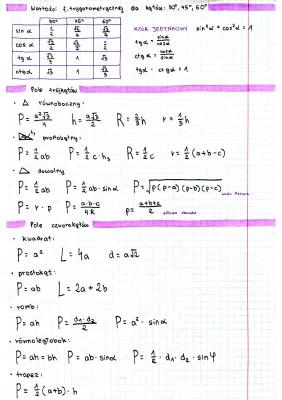 Wartości f. trygonometrycznej dla kątów: 30°, 45°, 60°
30° 45° 60°
sin α 1/2 √2/2 √3/2
cos α √3/2 √2/2 1/2
tg α √3/3 1 √3
ctg α √3 1 √3/3
WZÓR JEDYNKOWY sin²α + cos²α = 1
tg α = sinα/cosα
ctg α = cosα/sinα
tg α · ctg α = 1
Pole trójkątów
• △ równoboczny:
P = a²√3/4 h = a√3/2 R = 2/3 h r = 1/3 h
prostokątny:
P = 1/2 ab P = 1/2 c·h R = 1/2 c r = 1/2 (a+b-c)
• △ dowolny
P = 1/2 ah P = 1/2 ab·sinα P = √p(p-a)(p-b)(p-c)
P = r·p P = a·b·c/4R p = a+b+c/2
Pole czworokątów
• kwadrat:
P = a² L = 4a d = a√2
• prostokąt:
P = ab L = 2a + 2b
• romb:
P = ah P = d₁·d₂/2 P = a²·sinα
• równoległobok:
P = ah = bh P = ab·sinα P = 1/2·d₁·d₂·sinφ
• trapez:
P = 1/2 (a+b)·h